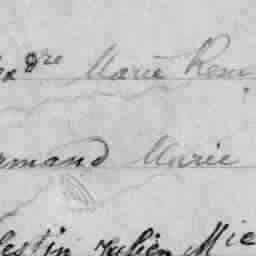 xdre Marie Rem
rmand Marie
lestin Julien Mie